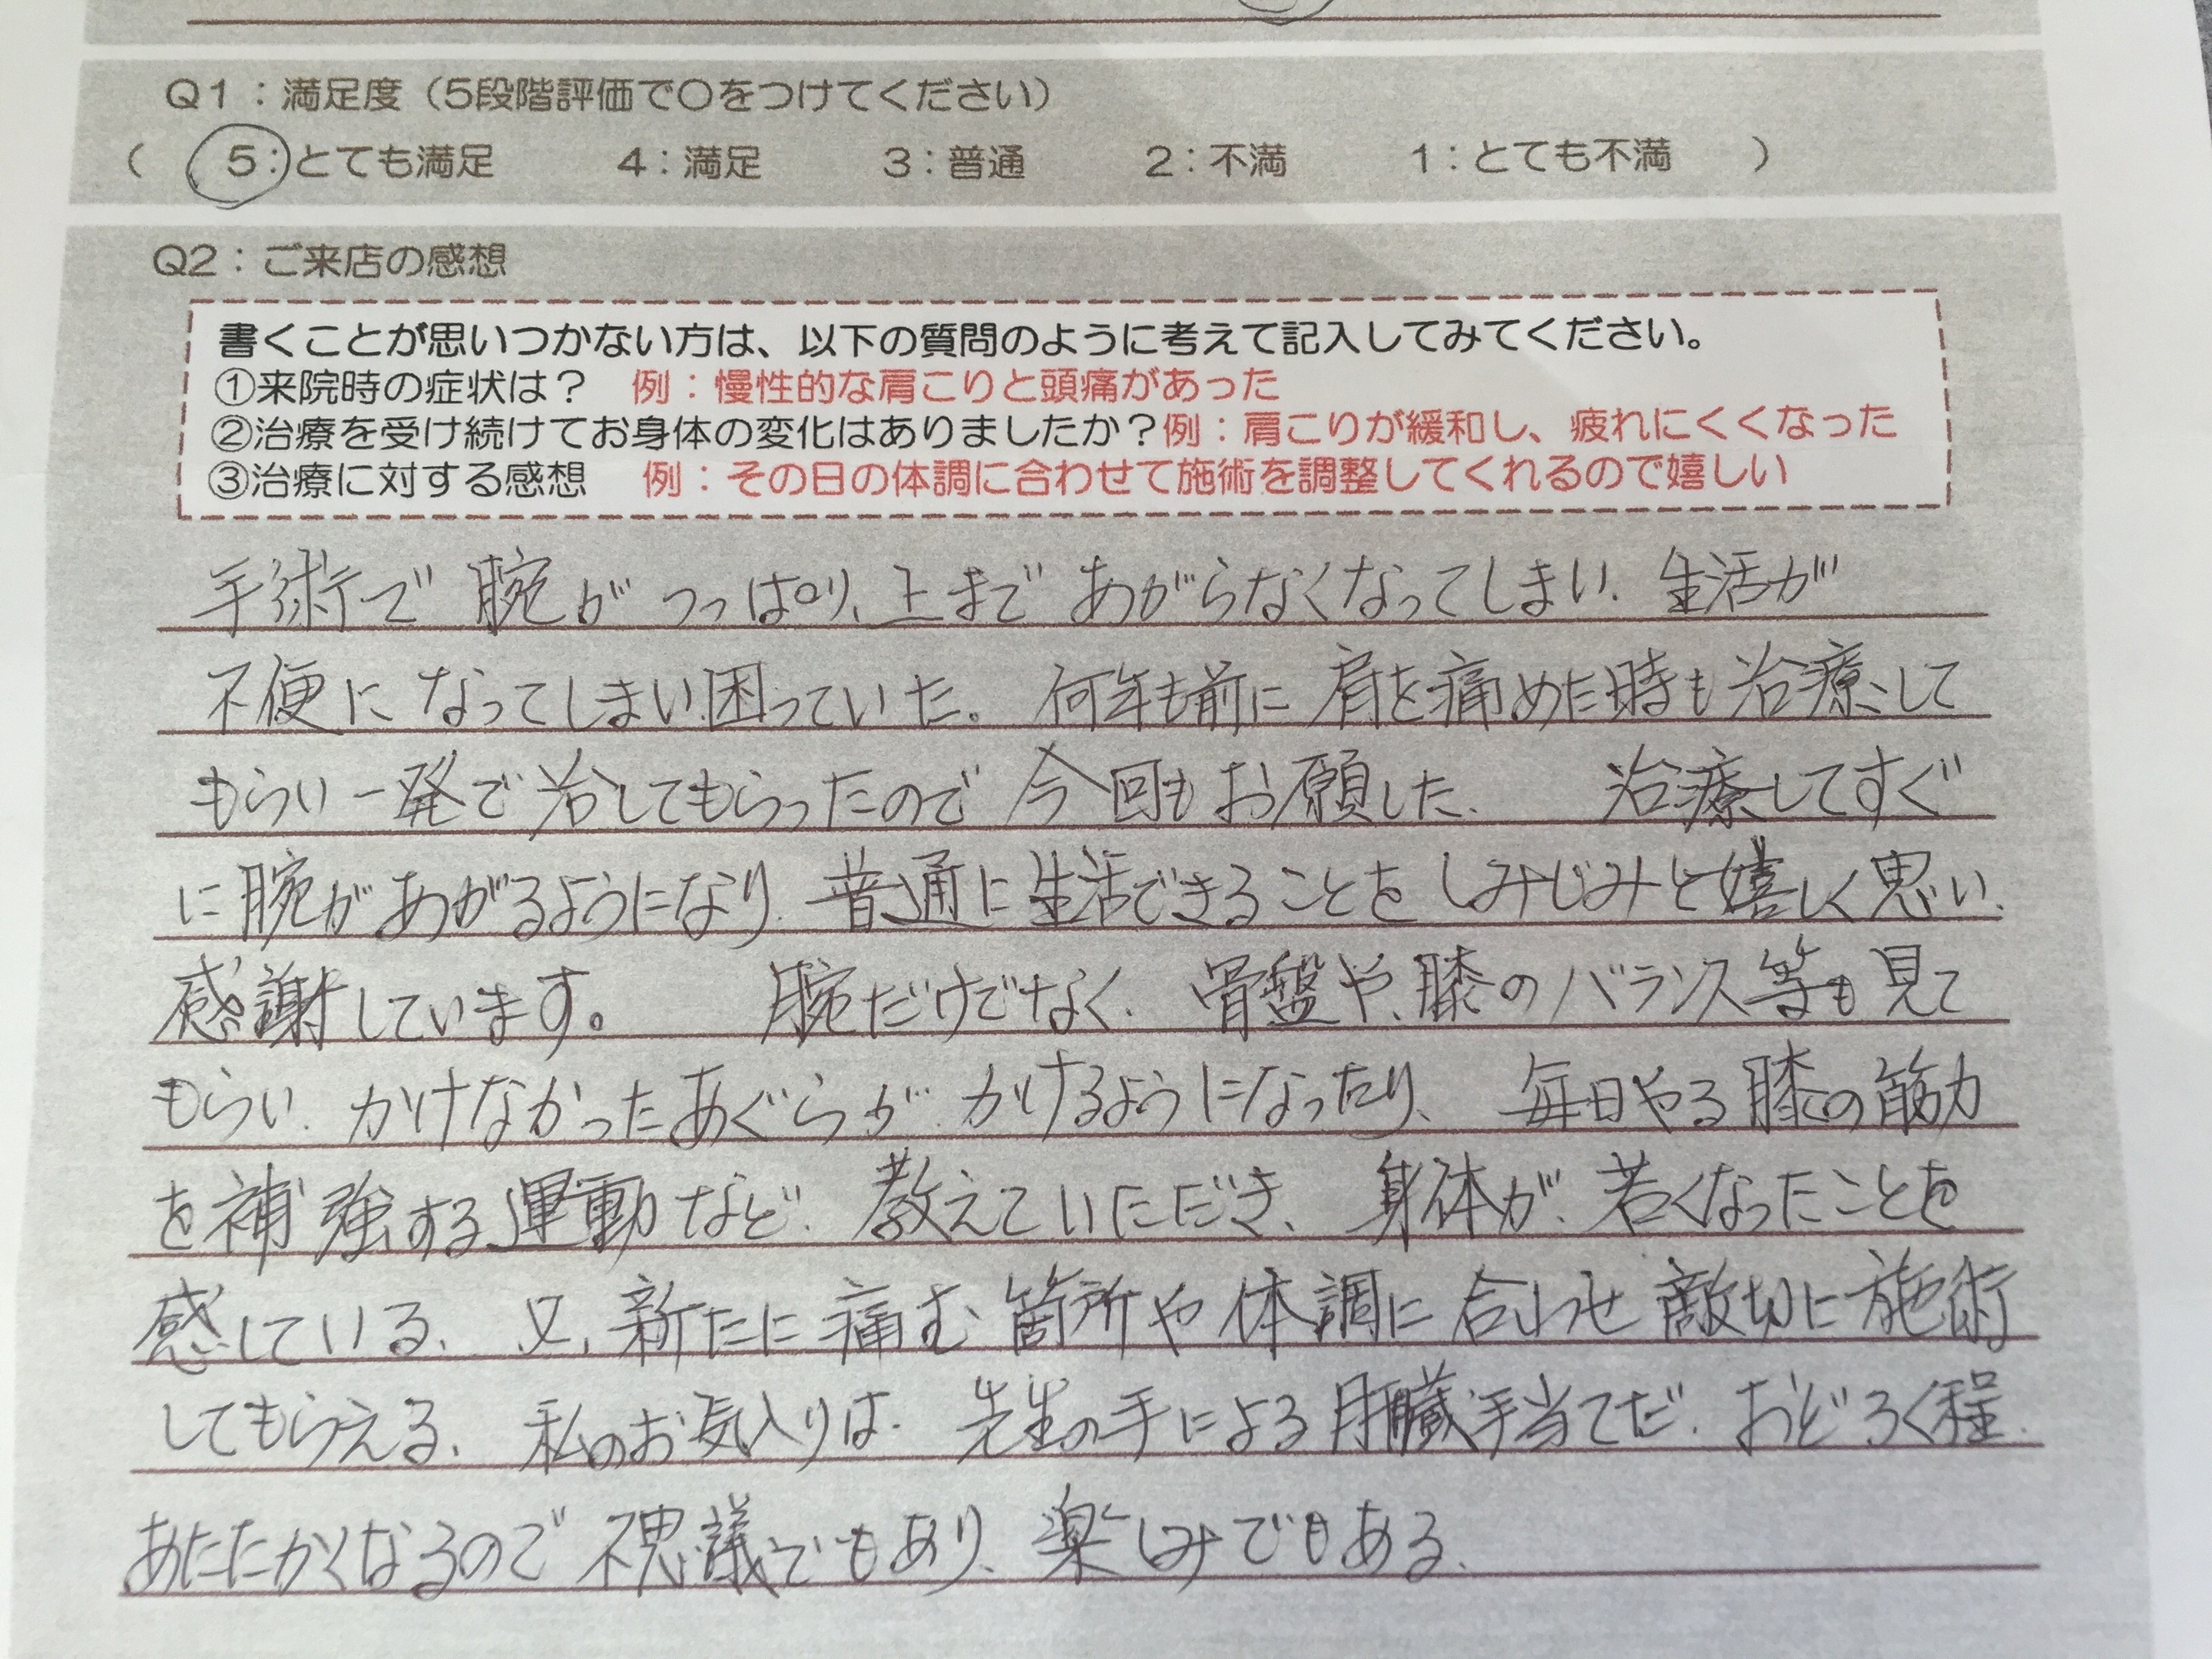 Q1：満足度（5段階評価で〇をつけてください）
（　5：とても満足　4：満足　3：普通　2：不満　1：とても不満　）
Q2：ご来店の感想
書くことが思いつかない方は、以下の質問のように考えて記入してみてください。
①来院時の症状は？　例：慢性的な肩こりと頭痛があった
②治療を受け続けてお身体の変化はありましたか？例：肩こりが緩和し、疲れにくくなった
③治療に対する感想　例：その日の体調に合わせて施術を調整してくれるので嬉しい
手術で腕がつっぱり、上まであがらなくなってしまい、生活が
不便になってしまい困っていた。何年も前に肩を痛めた時も治療して
もらい一発で治してもらったので今回もお願した、治療してすぐ
に腕があがるようになり、普通に生活できることをしみじみと嬉しく思い、
感謝しています。腕だけでなく、骨盤や、膝のバランス等も見て
もらい、かけなかったあぐらが、かけるようになったり、毎日やる膝の筋力
を補強する運動など、教えていただき、身体が、若くなったことを
感している、又、新たに痛む箇所や体調に合わせ敵切に施術
してもらえる、私のお気入りは、先生の手による肝臓手当てだ、おどろく程、
あたたかくなるので不思議でもあり、楽しみでもある、